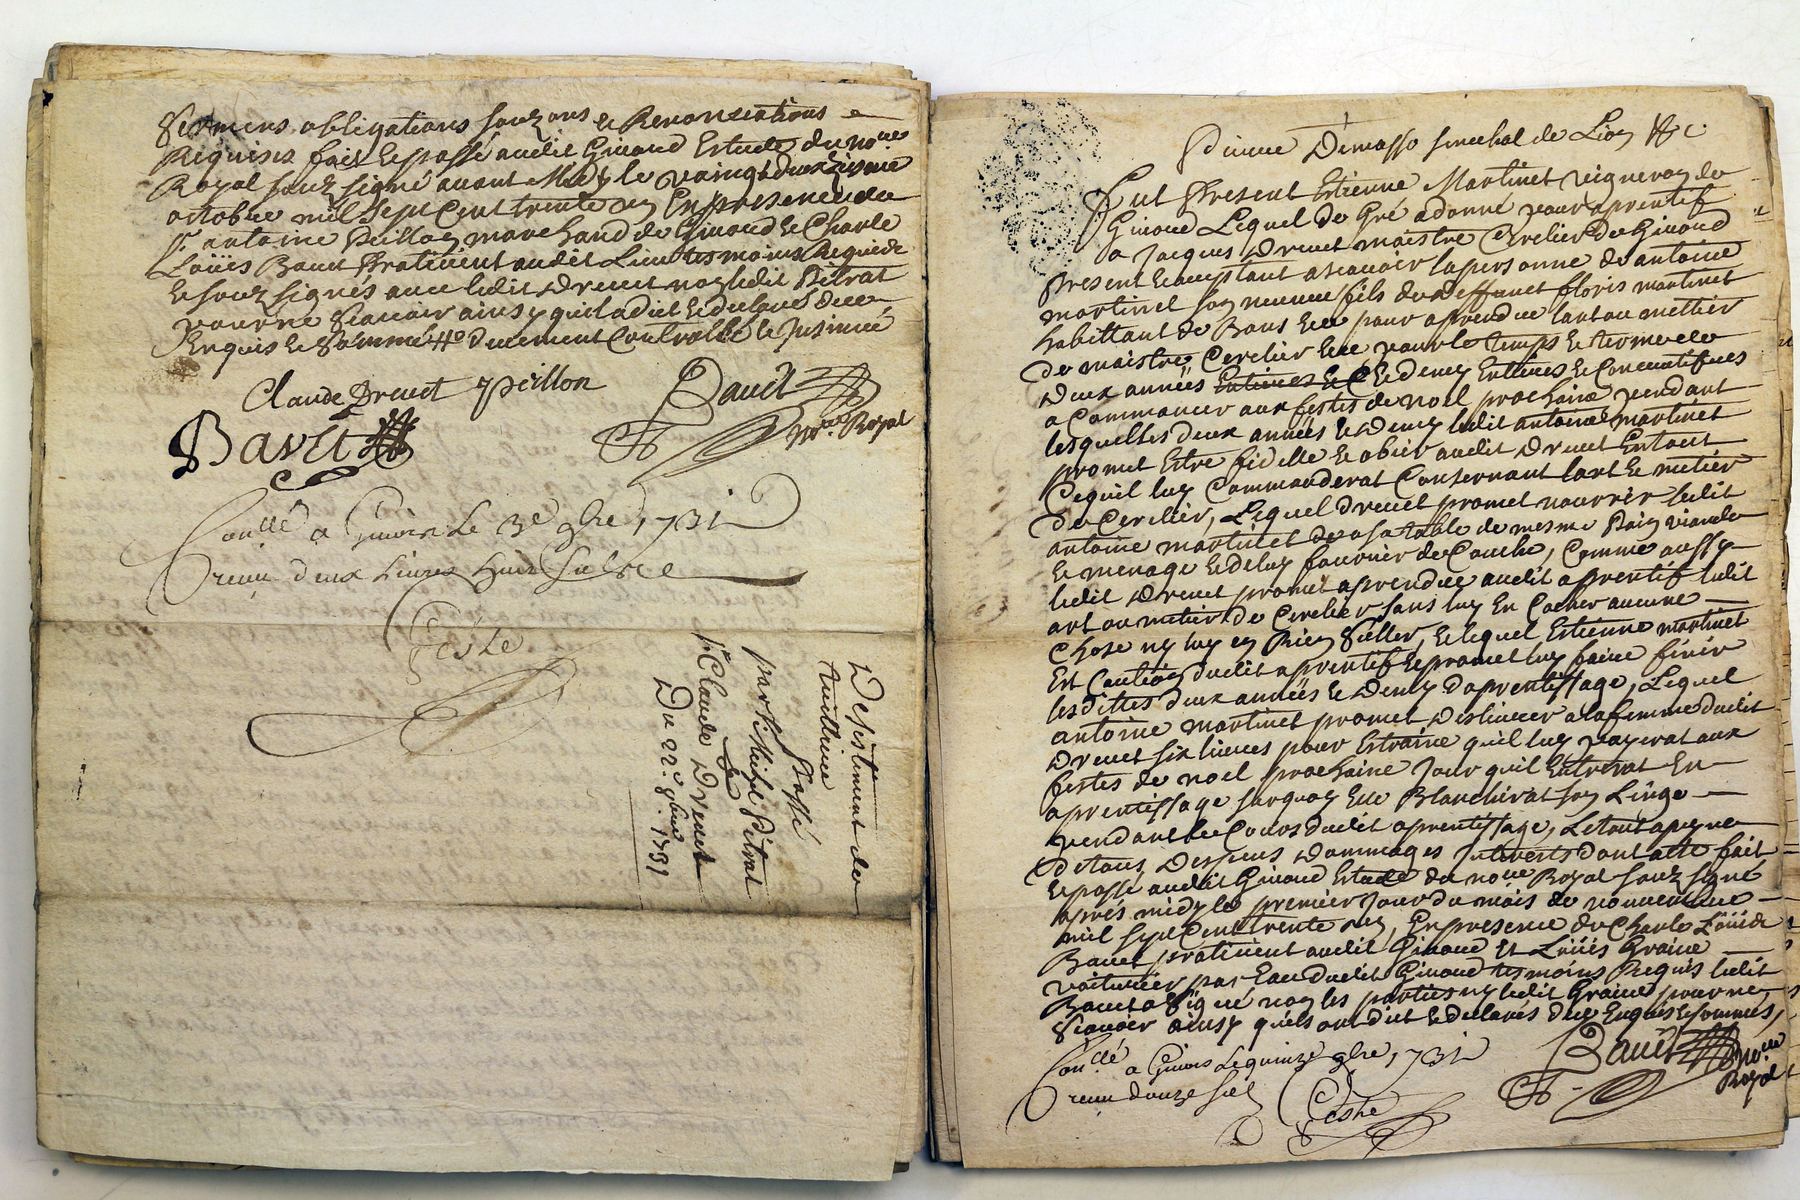 Sermens obligations souzons & Renonciations
Requises fait & passé audit Givord Estude du no.re
Royal souz signé avant Midy le vaingtdeuxziesme
octobre mil sept Cent trente un En presence de
S.r antoine Peillon marchand de Givord & Charle
Loüis Bauet Pratitient audit Lieu tesmoins Requis &
& souz signés avec ledit Dreuet non ledit Pitrat
pour ne Scauoir ainsy quil a dit & declaré de ce
Enquis & Sommé # duement Controllé & Insinué
Claude Dreuet peillon Bauet
no.re Royal
Bavet
Con.llé a Givors Le 3e 9bre 1731
receu deux Livres huit sols
Teste
Desistement de
tuillerie
Passé
par Pitrat
&
S.r Claude Dreuet
Du 22.e 8bre 1731
Pierre Dimasso senechal de Lion &c
Fut Present Estienne Martinet vigneron de
Givord Lequel de Gré a donné pour aprentif
a Jacques Dreuet maistre Cerclier de Givord
present & acceptant a scauoir la personne de antoine
martinet son neueu fils de deffunct floris martinet
habittant de Bans & ce pour aprendre lart ou mettier
de maistre Cerclier & ce pour le temps & terme de
deux années Entieres & C & demy Entieres & Consecutifues
a Commancer aux festes de noel prochaine pendant
lesquelles deux années & Demy ledit antoine martinet
promet Estre fidelle & obeir audit Dreuet En tout
Ce quil luy Commanderat Consernant lart & metier
de Cerclier, Lequel dreuet promet nourrir ledit
antoine martinet de a sa table de mesme Pain viande
& menage & de luy fournir de Couche, Comme aussy
ledit Dreuet promet aprendre audit apprentif ledit
art ou metier de Cerclier sans luy En Cacher aucune
Chose ny luy en Rien Celler, & lequel Estienne martinet
Est Caution dudit aprentif & promet luy faire finir
lesdittes deux années & Demy daprentissage, Lequel
antoine martinet promet Desliurer a la femme dudit
Dreuet six liures pour Estraine quil luy payerat aux
festes de noel prochaine Jour quil Entrerat En
aprentissage surquoy Elle Blanchirat son Linge
pendant le Cours dudit aprentissage, Le tout a peyne
de tous Despens Dommages Interests dont acte fait
& passé audit Givord Estude du no.re Royal souz signé
aprés midy le premier Jour du mois de nouembre
mil sept Cent trente un, En presence de Charle Loüis
Bauet pratitient audit Givord Et Loüis Graine
voiturier par Eau dudit Givord tesmoins Requis ledit
Bauet a signé non les parties ny ledit Graine pour ne
Scauoir ainsy quils ont dit & declarés de ce Enquis & sommés,
Con.llé a Givors Le quinze 9bre 1731
receu douze sols
Teste
Bauet
no.re
Royal